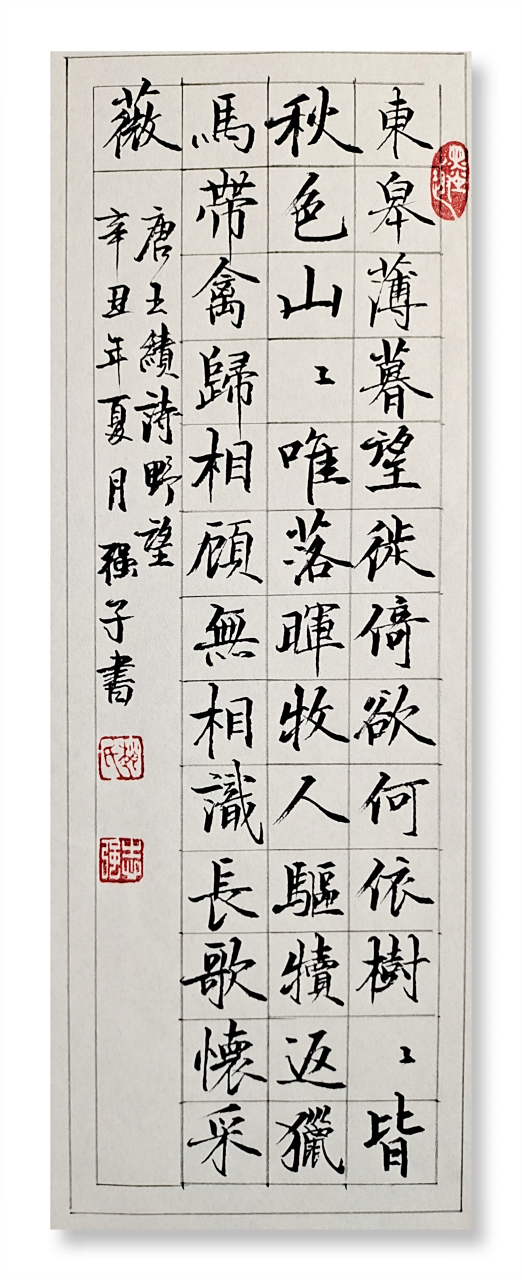 東皋薄暮望徙倚欲何依樹〻皆
秋色山〻唯落暉牧人驅犢返獵
馬帶禽歸相顧無相識長歌懷采
薇
唐王績詩野望
辛丑年夏月强子書
志强